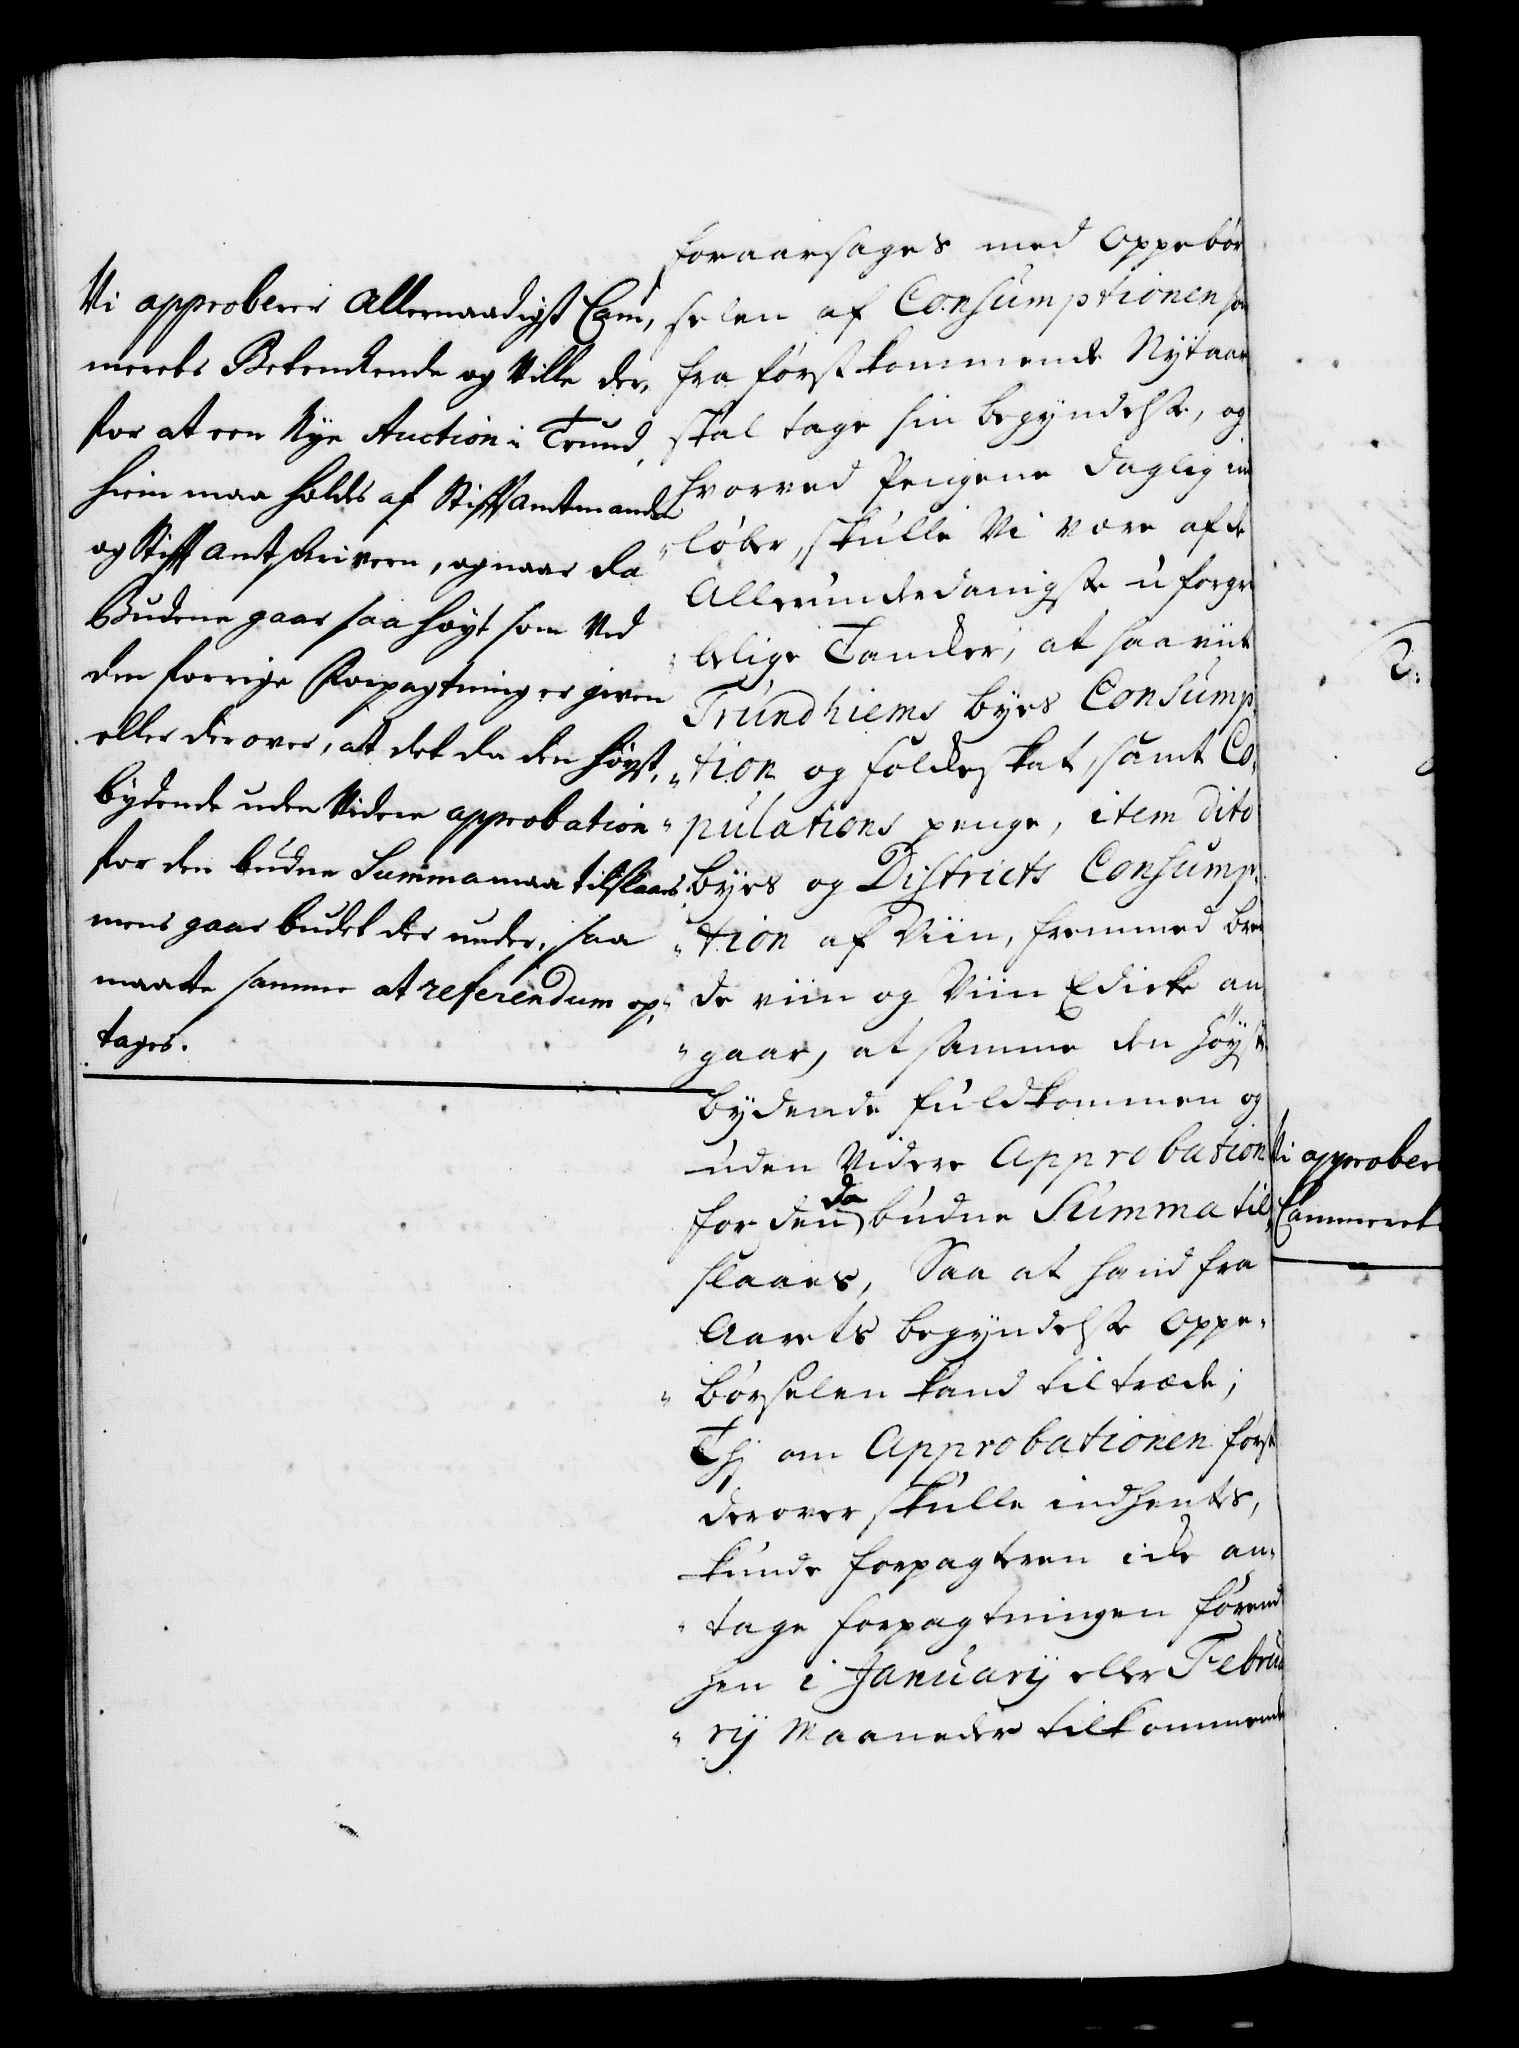 Vi approberer Allernaadigst Cam,
merets Betenkende og Ville der,
for at een Nye Auction i Trund,
hiem maa holdes af Stiftamtmanden
og Stiftamtskriveren, og naar da
Budene gaar saa høyt som Ved
den forrige Forpagtning er given
eller derover, at det da den høyst,
bydende uden Videre approbation
for den budne Summa maa tilslaaes,
mens gaar budet der under, saa
maatte samme at referendum op,
tages.
foraarsages med Oppebør
selen af Consumptionen som
fra først kommende Nytaar
skal tage sin begyndelse, og
hvorved Pengene daglig ind
løber, skulle Vi være af de
Allerunderdanigste uforgri
belige Tancker, at saaviit
Trundhiems byes Consump,
tion og folckeskat, samt Co,
pulations penge, item dito
byes og Districts Consump,
tion af Viin, fremmed bren
de viin og Viin Edicke an,
gaar, at samme den høyst,
bydende fuldkommen og
uden Videre Approbation
for den da budne Summa til,
slaaes, Saa at hand fra
Aarets begyndelse Oppe,
børselen kand tiltræde;
Thj om Approbationen først
derover skulle indhentes,
kunde forpagteren icke an,
tage forpagtningen førend
hen i Januarij eller Februa
rij Maaneder tilkommende
Vi approberer
Cammerets